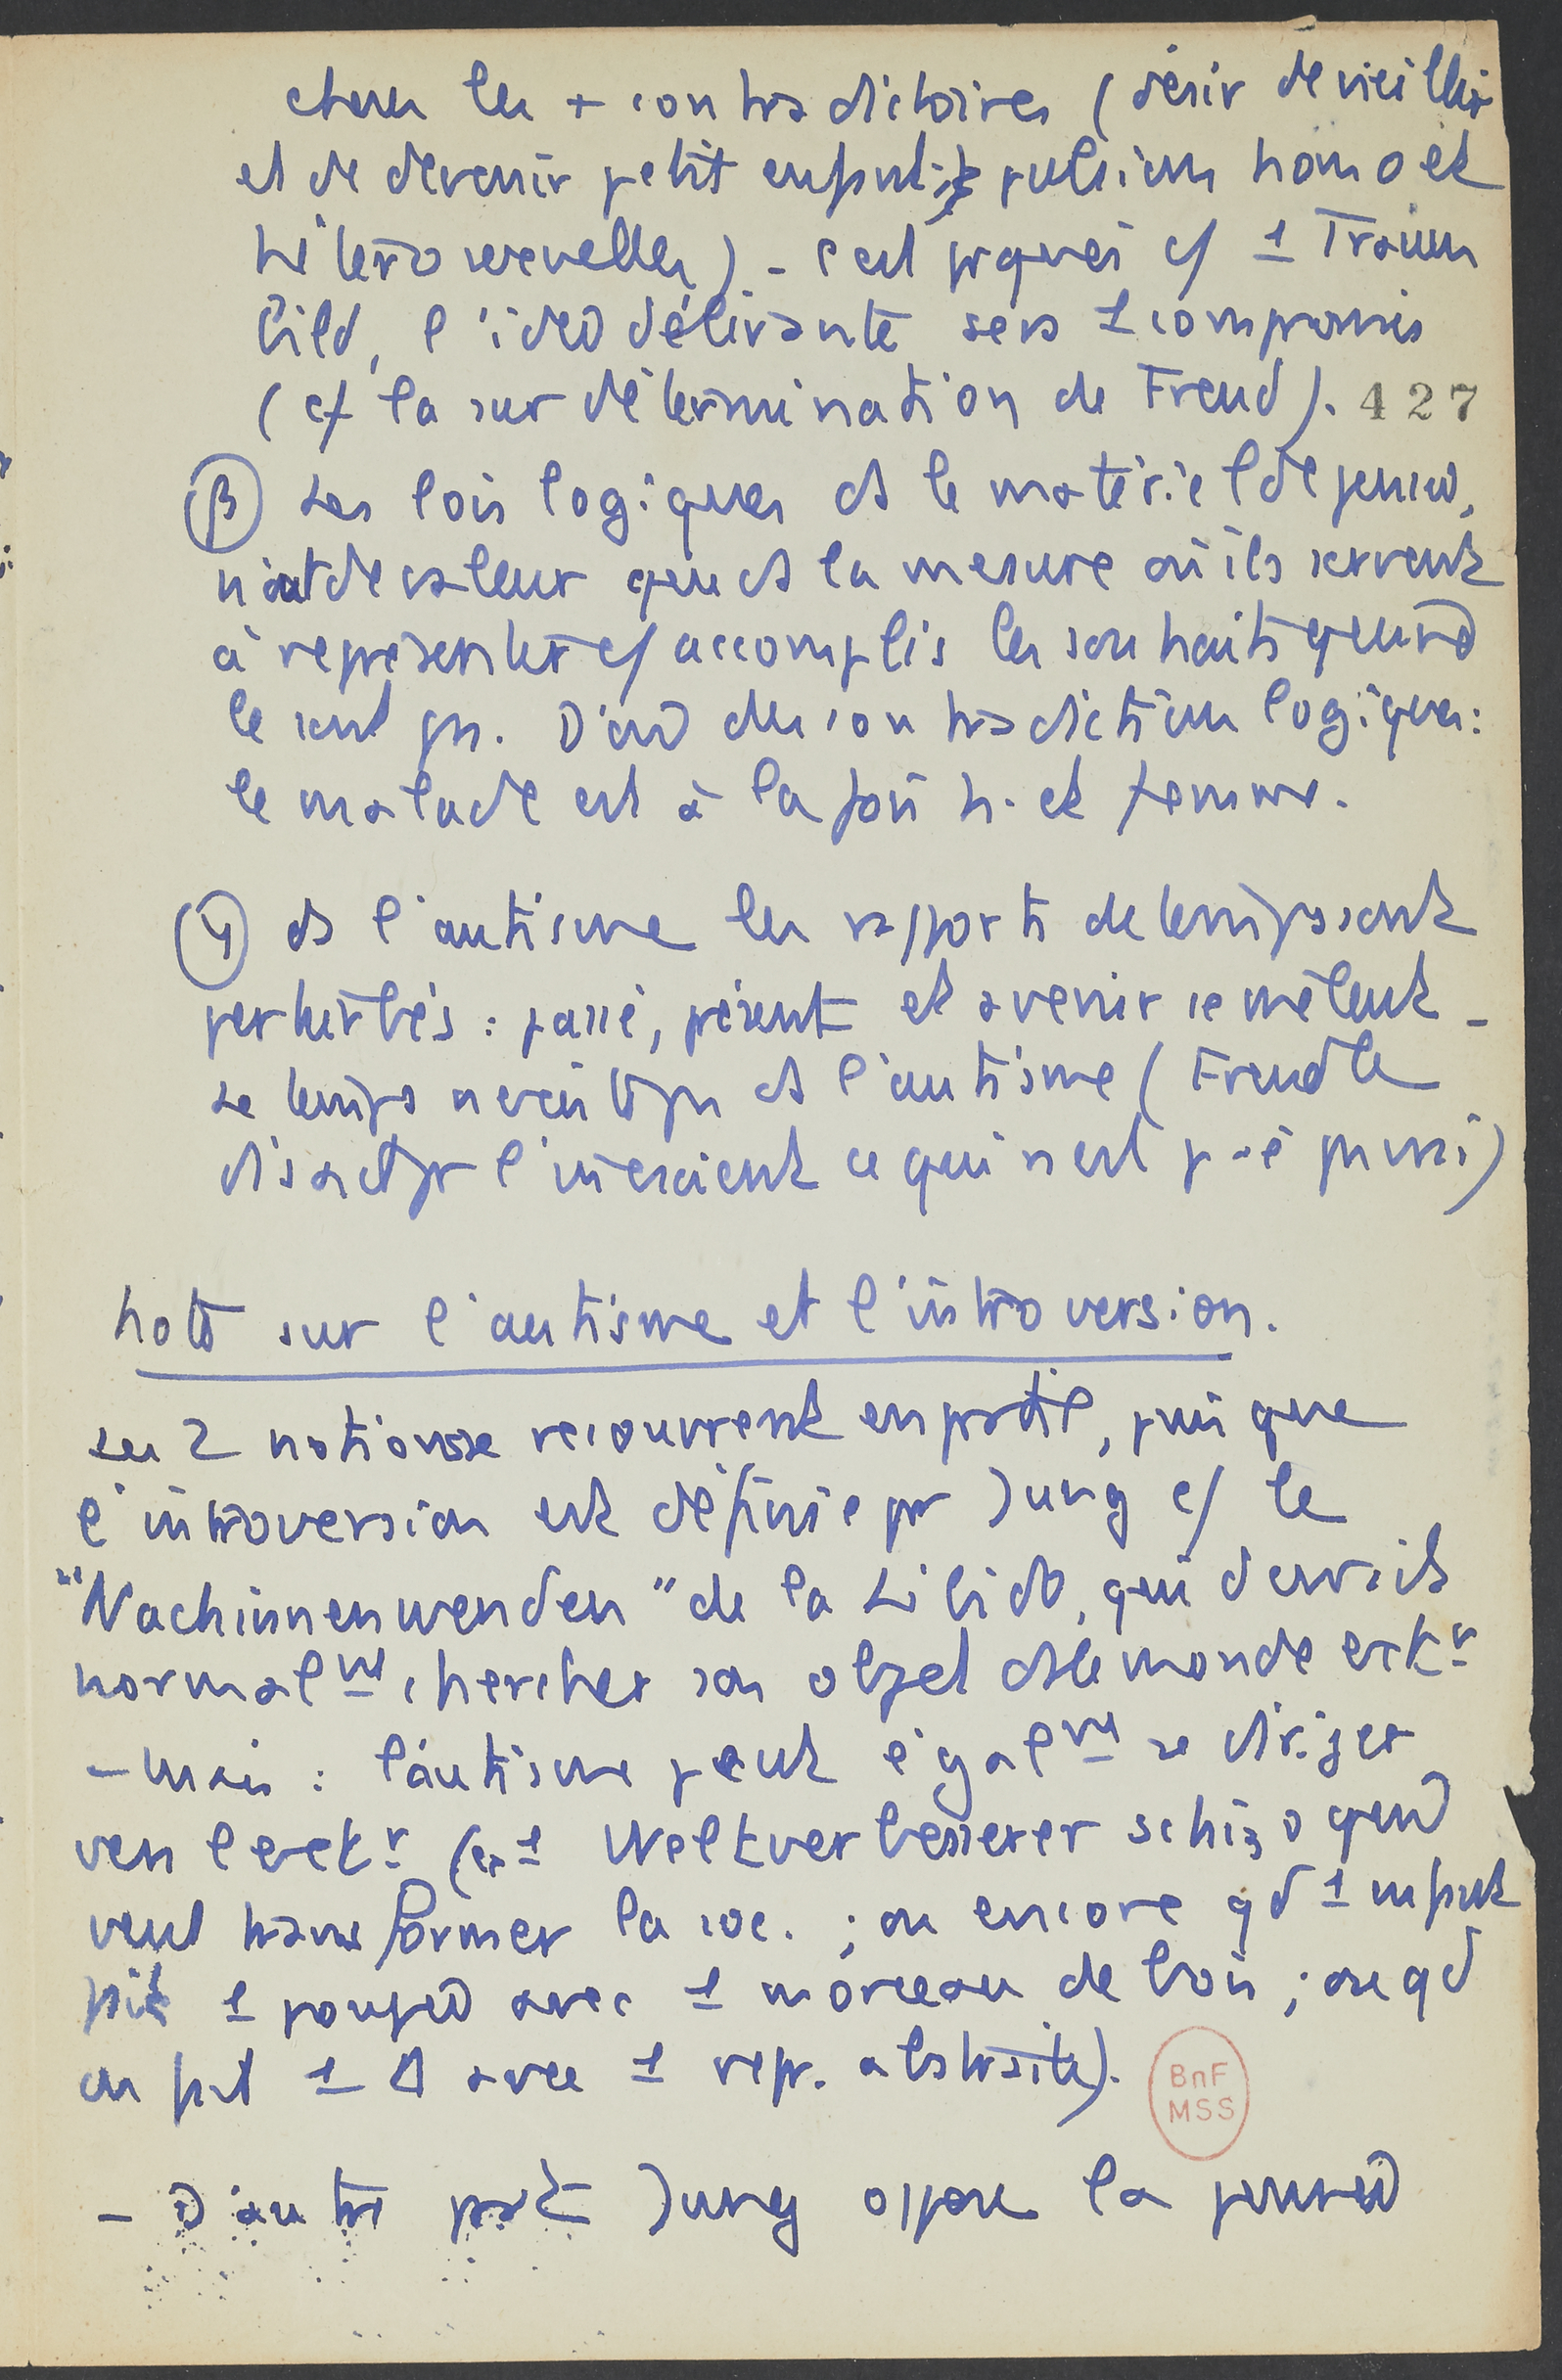 choses les + contradictoires (désir de vieillir
et de devenir petit enfant; pulsions homo et
hétérosexuelles) - c'est pquoi c/ 1 Traum
bild, l'idée délirante sera 1 compromis
(cf la surdétermination de Freud). 427
β Les lois logiques ds le matériel de pensée,
n'ont de valeur que ds la mesure où ils servent
à représenter c/ accomplis les souhaits quand
le sont ps. D'où des contradictions logiques:
le malade est à la fois h. et femme.
γ ds l'autisme les rapports de temps sont
perturbés : passé, présent et avenir se mêlent -
Le temps n'existe ps ds l'autisme (Freud le
disait pr l'inconscient ce qui n'est p-ê ps vrai)
Note sur l'autisme et l'introversion.
Les 2 notions se recouvrent en partie, puisque
l'introversion est définie par Jung c/ le
"Nachinnenwenden" de la Libido, qui devrait
normalmt chercher son objet ds le monde extr
- mais : l'autisme peut égalmt se diriger
vers l'extr (ex 1 Weltverbesserer schizo quand
veut transformer la soc. ; ou encore qd 1 enfant
fait 1 poupée avec 1 morceau de bois ; ou qd
on fait 1 Δ avec 1 repr. abstraite).
BnF
MSS
- D'autre part Jung oppose la pensée